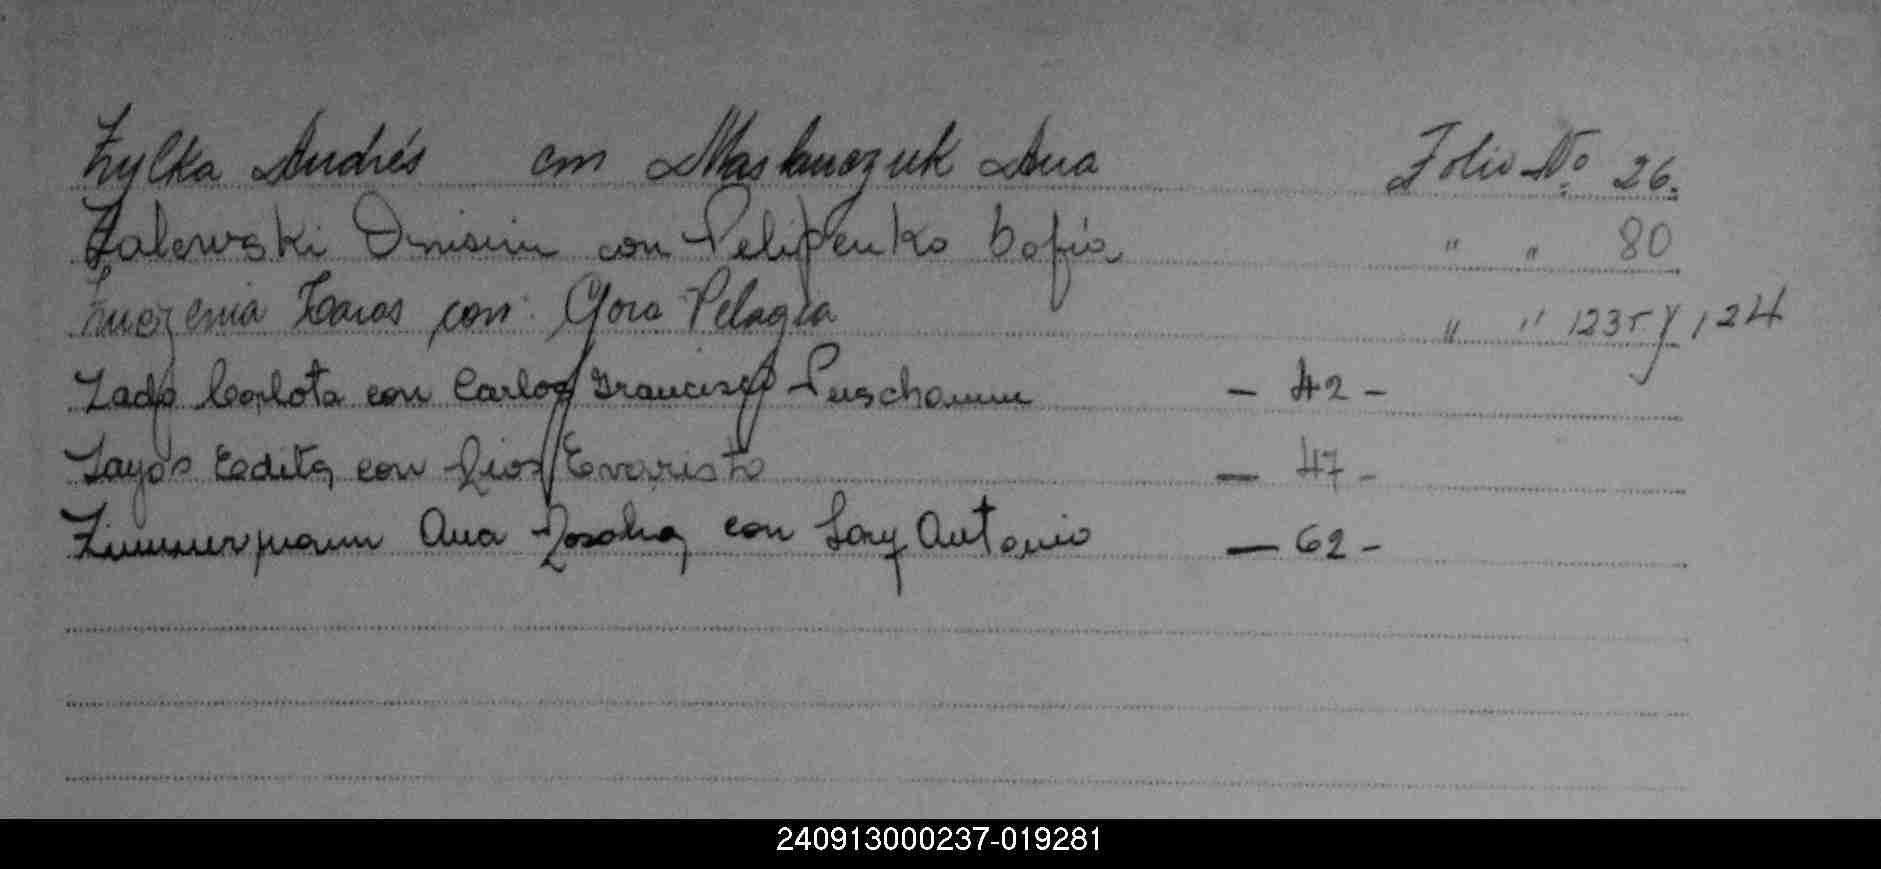 Zylka Andrés con Maslanczuk Ana Folio No. 26.
Zalewski Onisim con Pelipenko Sofia " " 80
Zaras con Gora Pelagia " " 123 y 124
Carlota con Carlos Francisco - 42 -
Zayas Edita con Rios Evaristo - 47 -
Zimmermann Ana Rosalia con Antonio - 62 -
240913000237-019281